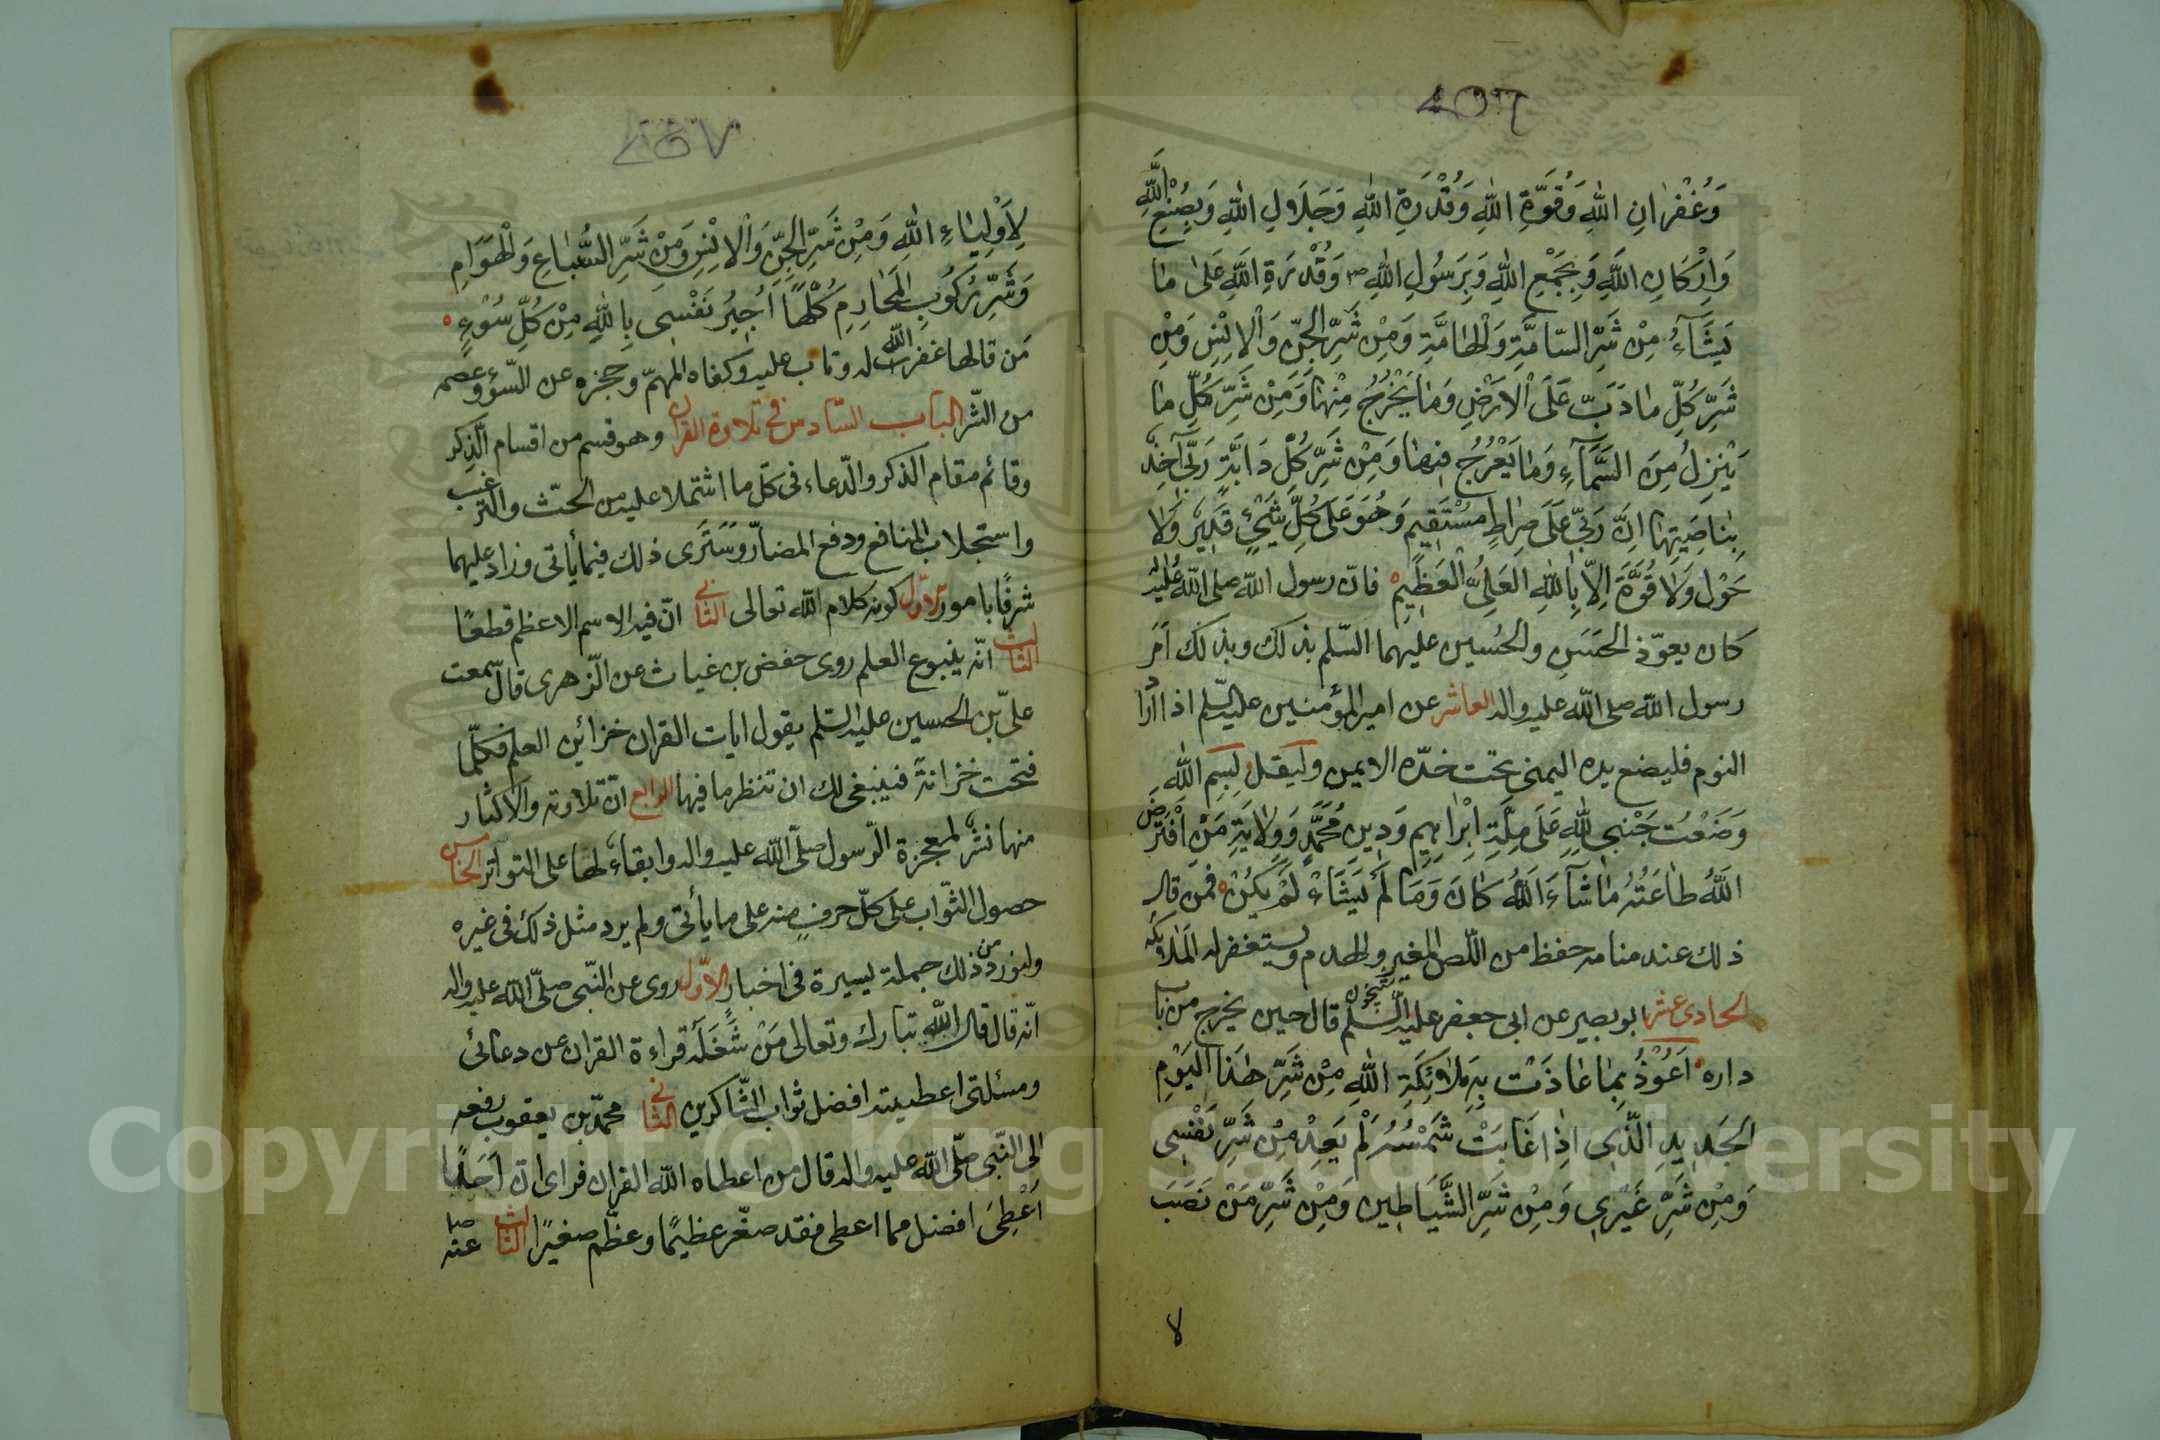 ٤٥٦
وَغُفْرَانِ اللهِ وَقُوَّةِ اللهِ وَقُدْرَةِ اللهِ وَجَلَالِ اللهِ وَبِصُنْعِ اللهِ
وَارْكَانِ اللهِ وَبِجَمْعِ اللهِ وَبِرَسُولِ اللهِ ص وَقُدْرَةِ اللهِ عَلى مَا
يَشَآءُ مِنْ شَرِّ السَّامَّةِ وَالْهَامَّةِ وَمِنْ شَرِّ الْجِنِّ وَالْاِنْسِ وَمِنْ
شَرِّ كُلِّ مَا دَبَّ عَلَى الْاَرْضِ وَمَا يَخْرُجُ مِنْهَا وَمِنْ شَرِّ كُلِّ مَا
يَنْزِلُ مِنَ السَّمَآءِ وَمَا يَعْرُجُ فِيهَا وَمِنْ شَرِّ كُلِّ دَابَّةٍ رَبّى آخِذٌ
بِنَاصِيَتِهَا اِنَّ رَبّى عَلَى صِرَاطٍ مُسْتَقِيمٍ وَهُوَ عَلى كُلِّ شَىْءٍ قَدِيرٌ وَلَا
حَوْلَ وَلَا قُوَّةَ اِلَّا بِاللهِ الْعَلِىِّ الْعَظِيمِ فانّ رسول الله صلى الله عليه واله
كان يعوّذ الحَسَن والحُسين عليهما السّلم بذلك وبذلك اَمَر
رسول الله صلى الله عليه واله العاشر عن امير المؤمنين عليه السّلم اذا اراد
النوم فليضع يده اليمنى تحت خدّه الايمن وليقل بِسْمِ اللهِ
وَضَعْتُ جَنْبى لِلّهِ عَلَى مِلَّةِ اِبْرَاهِيمَ وَدِينِ مُحَمَّدٍ وَوِلَايَةِ مَنِ افْتَرَضَ
اللهُ طَاعَتَهُ مَا شَآءَ اللهُ كَانَ وَمَا لَمْ يَشَاْ لَمْ يَكُنْ فمن قال
ذلك عند منامه حفظ من اللّص المغير والهدم ويستغفر له المَلائكة
الحادى عشر ابو بصير عن ابى جعفر عليه السّلم قال حين يخرج من باب
داره اَعُوْذُ بِمَا عَاذَتْ بِهِ مَلَائِكَةُ اللهِ مِنْ شَرِّ هٰذَا الْيَوْمِ
الْجَدِيدِ الَّذِى اِذَا غَابَتْ شَمْسُهُ لَمْ يَعُدْ مِنْ شَرِّ نَفْسِى
وَمِنْ شَرِّ غَيْرِى وَمِنْ شَرِّ الشَّيَاطِينِ وَمِنْ شَرِّ مَنْ نَصَبَ
لا
٤٥٧
لِاَوْلِيَاءِ اللهِ وَمِنْ شَرِّ الْجِنِّ وَالْاِنْسِ وَمِنْ شَرِّ السُّبَاعِ وَالْهَوَامِ
وَشَرِّ رُكُوبِ الْمَحَارِمِ كُلِّهَا اُجِيرُ نَفْسِى بِاللهِ مِنْ كُلِّ سُوْءٍ
مَن قالها غفر الله له وتاب عليه وكفاه المهمّ وحجزه عن السّوء وعصمه
من الشّر الباب السّادس فى تلاوة القران وهو قسم من اقسام الذِكر
وقائم مقام الذكر والدّعاء فى كلّ ما اشتملا عليه من الحثّ والترغيب
واستجلاب المنافع ودفع المضارّ وسَتَرى ذلك فيما يأتى وزاد عليهما
شرفًا بامور الاوّل كونه كلام الله تعالى الثانى انّ فيه الاسم الاعظم قطعًا
الثالث انّه ينبوع العلم روى حفض بن غياث عن الزّهرى قال سمعت
علىّ بن الحسين عليه السّلم يقول ايات القران خزائن العلم فكلّما
فتحت خزانةً فينبغى لك ان تنظر ما فيها الرابع انّ تلاوته والاكثار
منها نشر لمعجزة الرّسول صلّى الله عليه واله وابقاء لها على التواتر الخامس
حصول الثّواب على كلّ حرفٍ منه على ما يأتى ولم يرد مثل ذلك فى غيره
ولنورد من ذلك جملة يسيرة فى اخبار الاوّل روى عن النّبى صلّى الله عليه واله
انّه قال قال الله تبارك وتعالى مَنْ شَغَلَه قراءة القران عن دعائى
ومسئلتى اعطيته افضل ثواب الشّاكرين الثانى محمّد بن يعقوب رفعه
الى النّبى صلّى الله عليه واله قال من اعطاه الله القران فراى ان اَحَدًا
اُعْطِىَ افضل مما اعطى فقد صغّر عظيمًا وعظّم صغيرًا الثالث عنه ص
Copyright © King Saud University